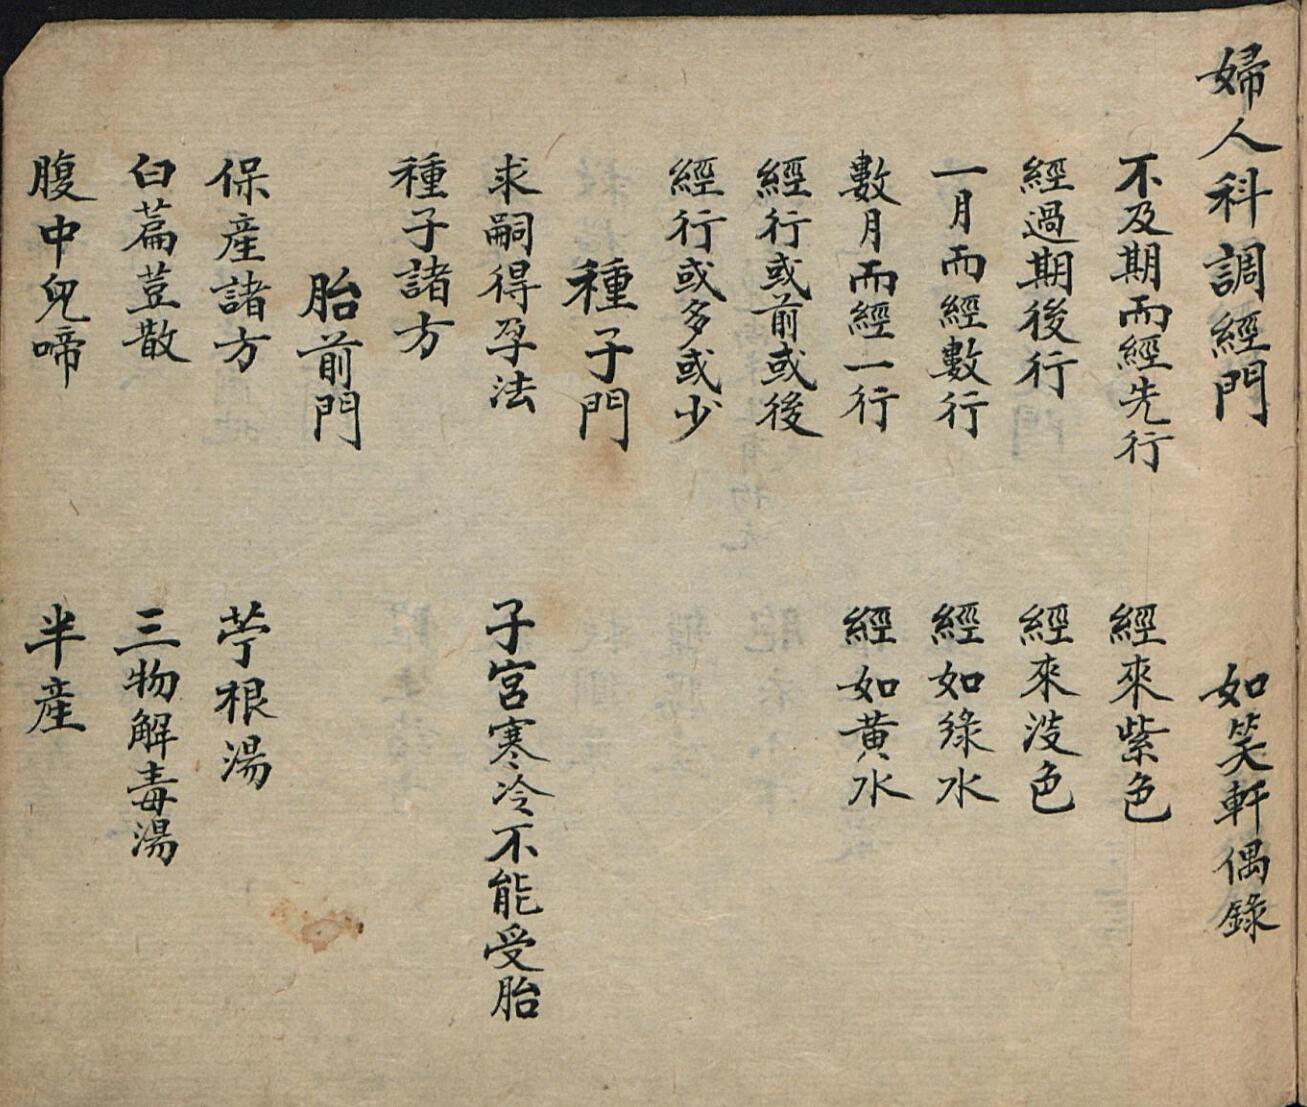 婦人科調經門 如笑軒偶錄
不及期而經先行 經來紫色
經過期後行 經來淡色
一月而經數行 經如綠水
數月而經一行 經如黃水
經行或前或後
經行或多或少
種子門
求嗣得孕法 子宮寒冷不能受胎
種子諸方
胎前門
保産諸方 苧根湯
白萹荳散 三物解毒湯
腹中兒啼 半産